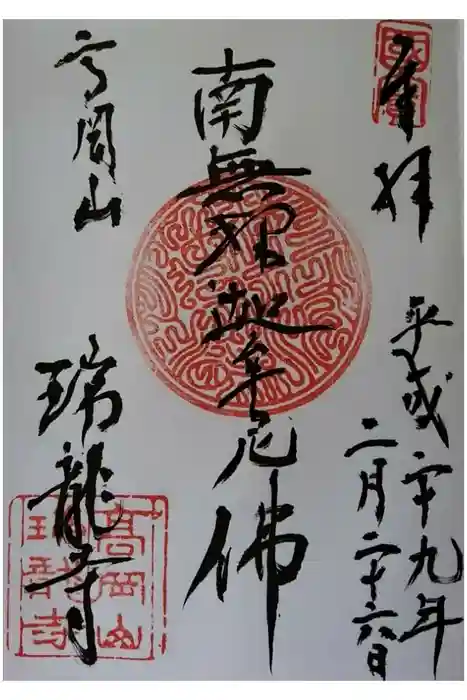 奉拝
國寶
平成二十九年
二月二十六日
南無釈迦牟尼佛
高岡山
瑞龍寺
高岡山
瑞龍寺